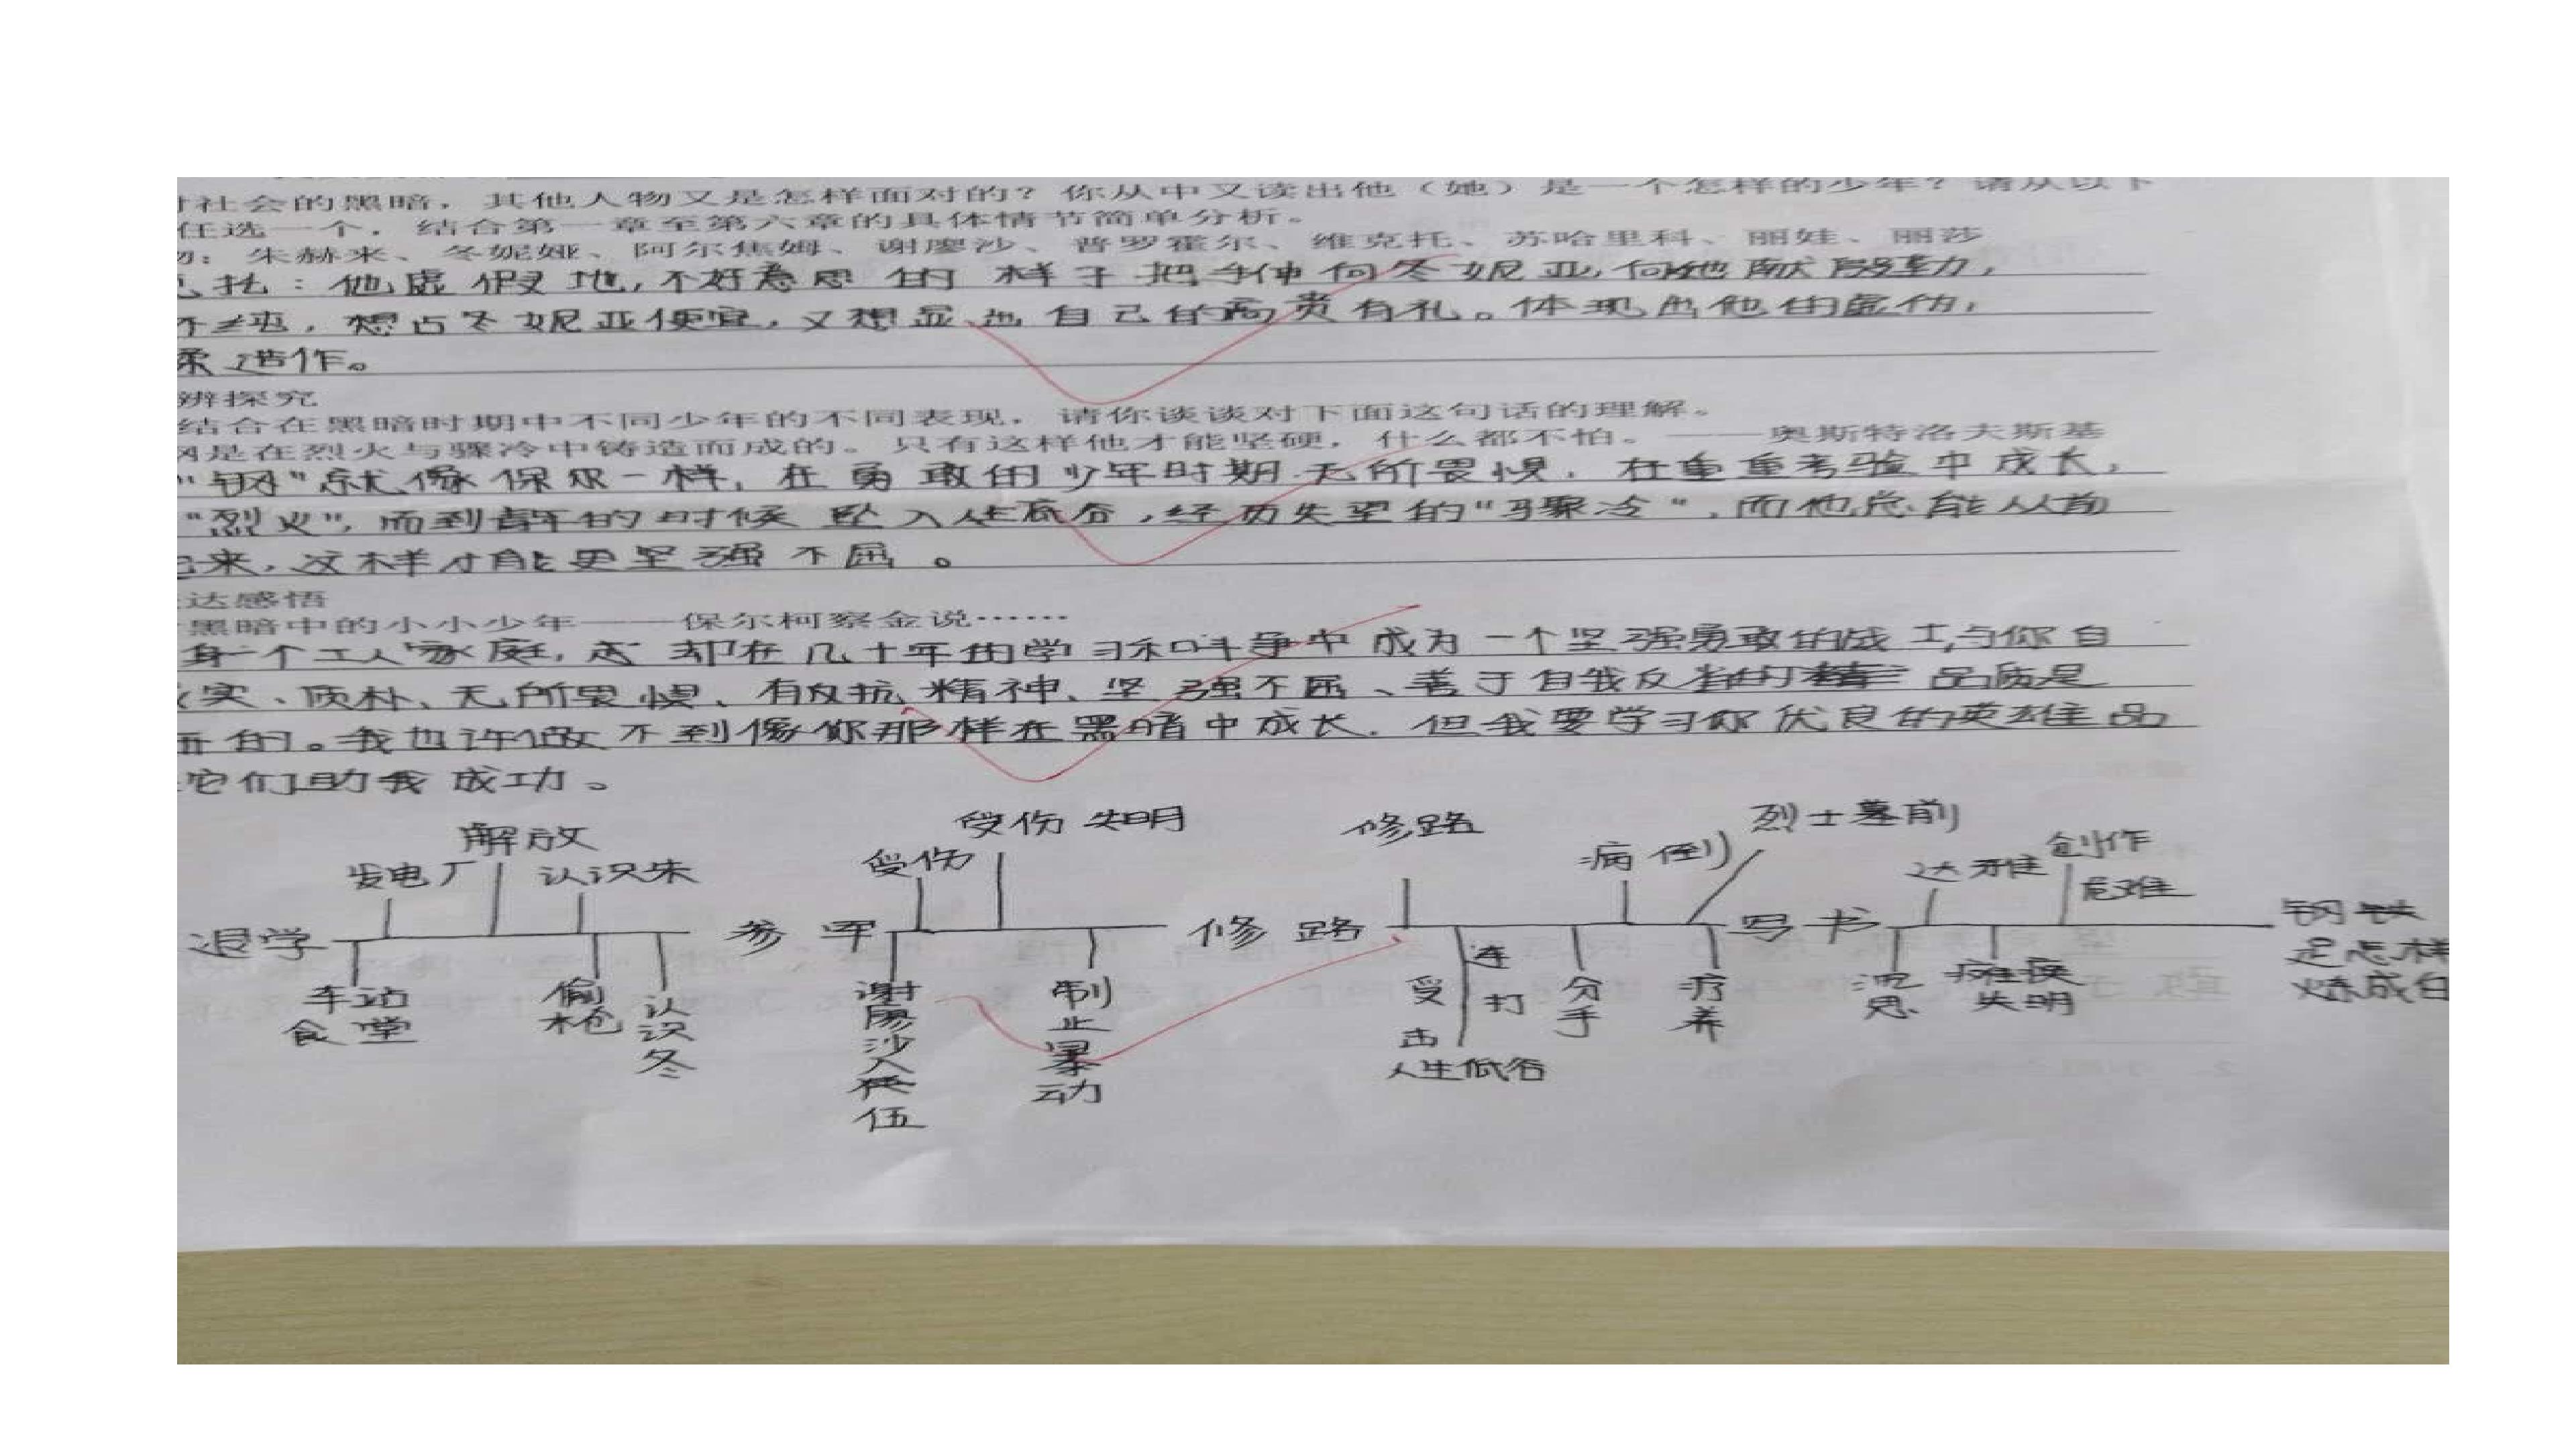 社会的黑暗，其他人物又是怎样面对的？你从中又读出他（她）是一个怎样的少年？请从以下
任选一个，结合第一章至第六章的具体情节简单分析。
物：朱赫来、冬妮娅、阿尔焦姆、谢廖沙、普罗霍尔、维克托、苏哈里科、丽娃、丽莎
托：他虚假地，不好意思的样子把手伸向冬妮亚，向她献殷勤，
不纯，想占冬妮亚便宜，又想显出自己的高贵有礼。体现出他的虚伪，
柔造作。
辨探究
结合在黑暗时期中不同少年的不同表现，请你谈谈对下面这句话的理解。
钢是在烈火与骤冷中铸造而成的。只有这样他才能坚硬，什么都不怕。——奥斯特洛夫斯基
“钢”就像保尔一样，在勇敢的少年时期无所畏惧，在重重考验中成长，
“烈火”，而到青年的时候坠入人生底谷，经历失望的“骤冷”，而他总能从前
来，这样才能更坚强不屈。
达感悟
黑暗中的小小少年——保尔柯察金说……
身一个工人家庭，却在几十年的学习和斗争中成为一个坚强勇敢的战士，与你自
实、质朴、无所畏惧、有反抗精神、坚强不屈、善于自我反省的品质是
开的。我也许做不到像你那样在黑暗中成长，但我要学习你优良的英雄品
它们助我成功。
解放
发电厂 认识朱
退学
车站食堂 偷枪 认识冬
参军
受伤 受伤失明
谢廖沙入队伍 制止暴动
修路
修路 病倒 烈士墓前
受连打击 人生低谷 分手 疗养
写书
达雅 创作 危难
沉思 瘫痪失明
钢铁
是怎样
炼成的